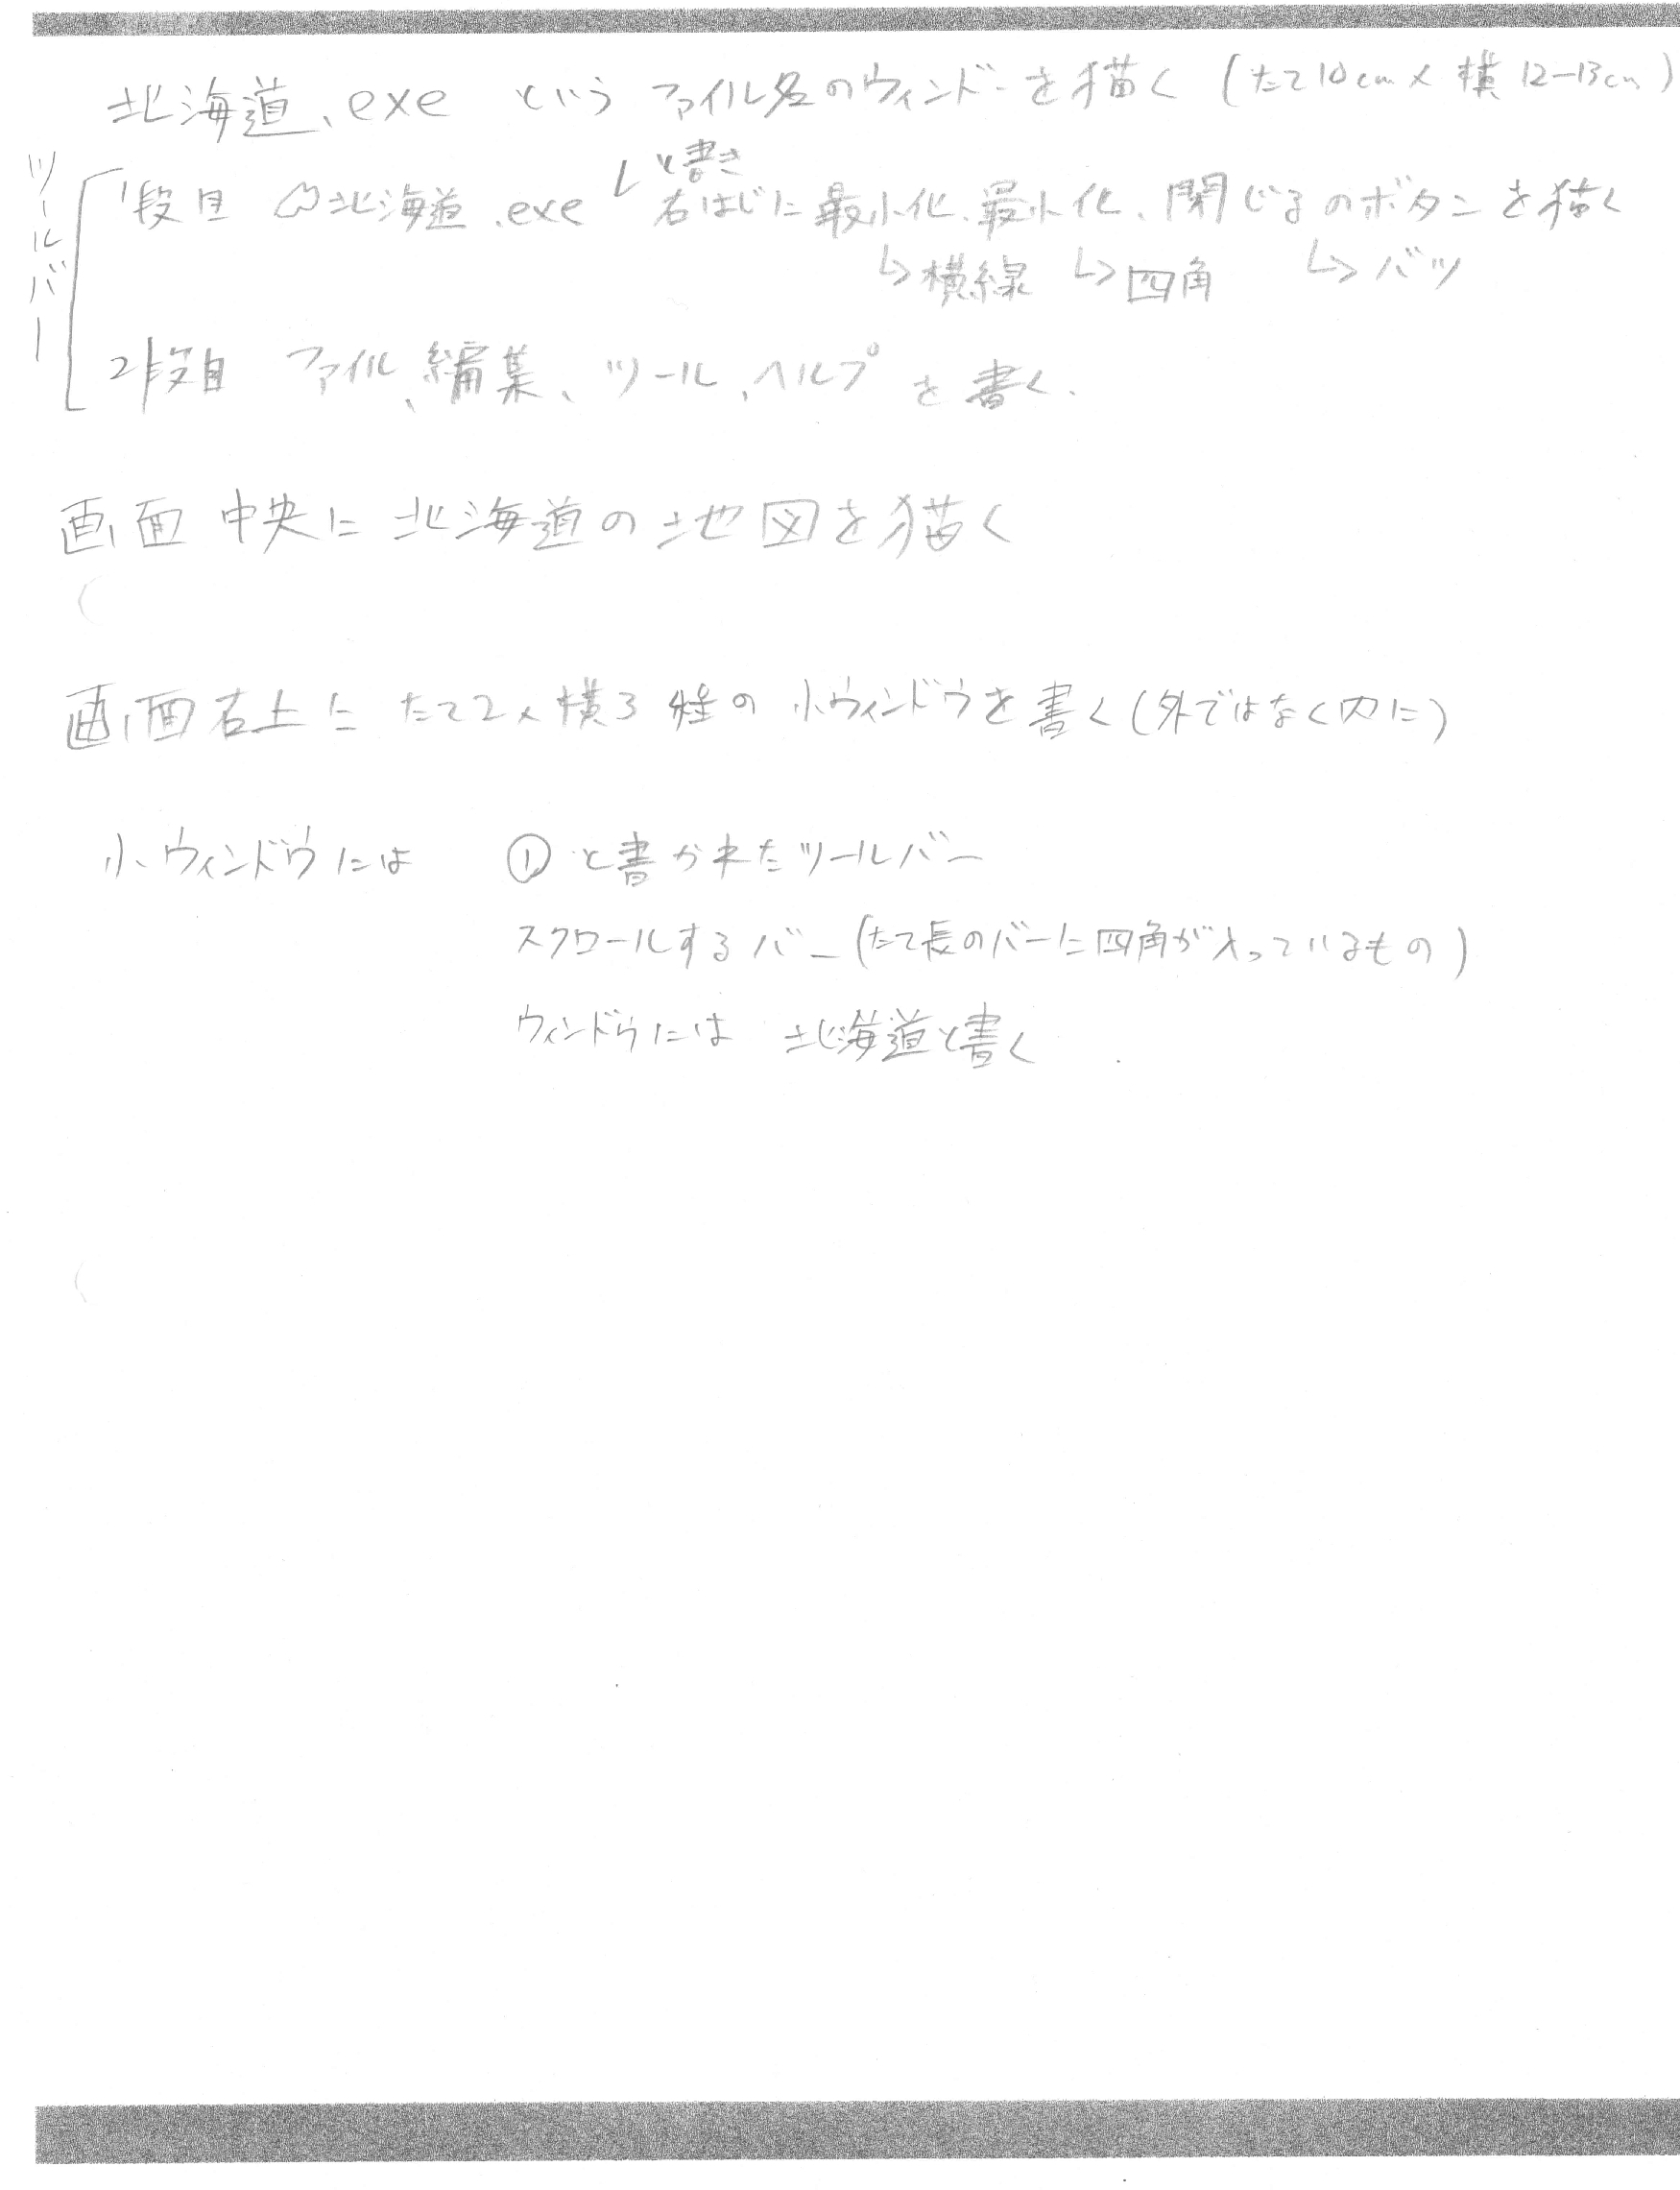 北海道.exe という ファイル名のウィンドーを描く (たて10cm×横12-13cm)
ツールバー
と書き
1段目 北海道.exe 右はじに最小化、最小化、閉じるのボタンを描く
↳横線 ↳四角 ↳バツ
2段目 ファイル、編集、ツール、ヘルプを書く.
画面中央に北海道の地図を描く
画面右上にたて2×横3 の小ウィンドウを書く(外ではなく内に)
小ウィンドウには ①と書かれたツールバー
スクロールするバー(たて長のバーに四角が入っているもの)
ウィンドウには 北海道と書く